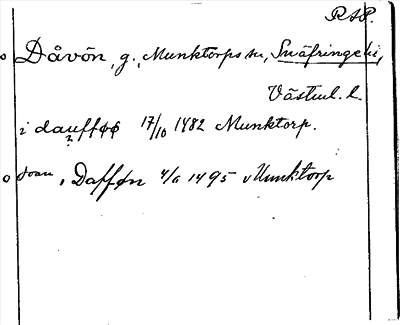 RAP.
Dåvön, g., Munktorps sn, Snäfringe hd,
Västml. l.
i daufføø 17/10 1482 Munktorp.
Dafføn 4/6 1495 Munktorp